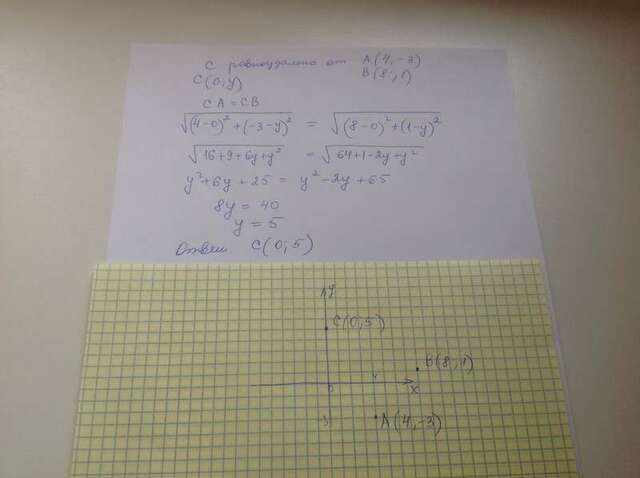 C равноудалено от A(4,-3)
B(8;1)
C(0;y)
CA = CB
√(4-0)²+(-3-y)² = √(8-0)²+(1-y)²
√16+9+6y+y² = √64+1-2y+y²
y²+6y+25 = y²-2y+65
8y = 40
y = 5
Ответ. C(0;5)
y
C(0;5)
B(8;1)
0 4 x
3 A(4,-3)